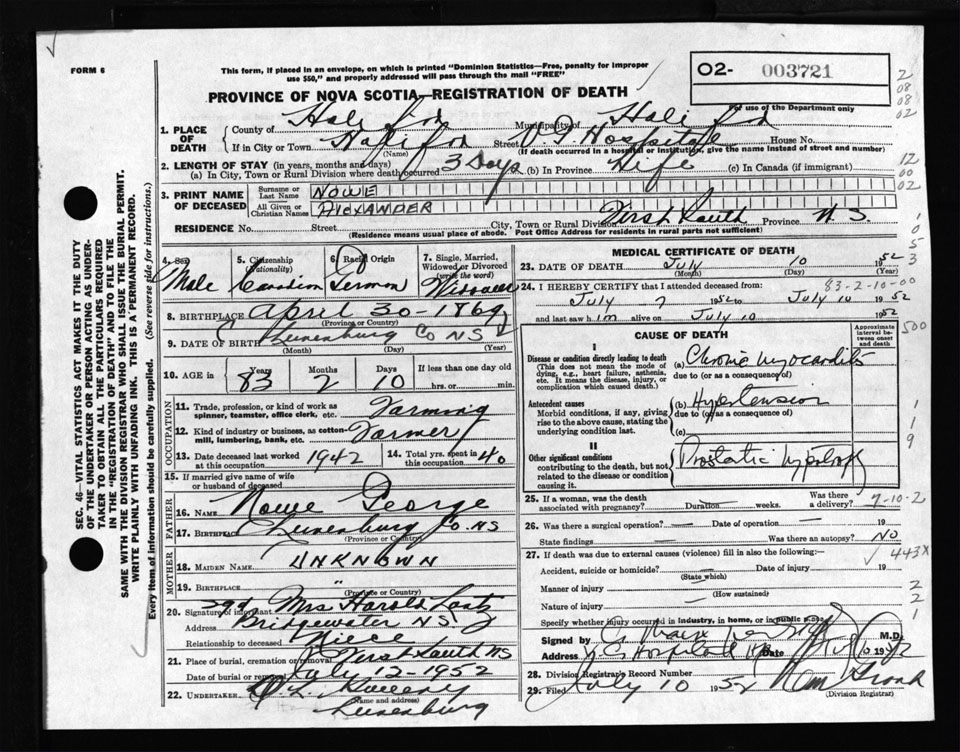 FORM 6
This form, if placed in an envelope, on which is printed "Dominion Statistics—Free, penalty for improper
use $50," and properly addressed will pass through the mail "FREE"
PROVINCE OF NOVA SCOTIA—REGISTRATION OF DEATH
02- 003721
For use of the Department only
1. PLACE OF DEATH
County of Halifax Municipality of Halifax
If in City or Town Halifax Street V.G Hospital House No.
(Name) (If death occurred in a hospital or institution, give name instead of street and number)
2. LENGTH OF STAY (in years, months and days)
(a) In City, Town or Rural Division where death occurred 3 Days (b) In Province Life (c) In Canada (if immigrant)
3. PRINT NAME OF DECEASED
Surname or Last Name NOWE
All Given or Christian Names AlEXANDER
RESIDENCE No. Street City, Town or Rural Division First South Province N.S.
(Residence means usual place of abode. Post Office Address for residents in rural parts not sufficient)
4. Sex Male
5. Citizenship (Nationality) Canadian
6. Racial Origin German
7. Single, Married, Widowed or Divorced (write the word) Widower
8. BIRTHPLACE April 30-1869
(Province or Country)
9. DATE OF BIRTH Lunenburg Co NS
(Month) (Day) (Year)
10. AGE in Years 83 Months 2 Days 10 If less than one day old
hrs. or min.
OCCUPATION
11. Trade, profession, or kind of work as spinner, teamster, office clerk, etc. Farming
12. Kind of industry or business, as cotton-mill, lumbering, bank, etc. Farmer
13. Date deceased last worked at this occupation 1942 14. Total yrs. spent in this occupation 40
15. If married give name of wife or husband of deceased
FATHER
16. Name Nowe George
17. Birthplace Lunenburg Co. NS
(Province or Country)
MOTHER
18. Maiden Name UNKNOWN
19. Birthplace "
(Province or Country)
20. Signature of informant Mrs Harold
Address Bridgewater N.S.
Relationship to deceased Niece
21. Place of burial, cremation or removal First South NS
Date of burial or removal July 12-1952
22. Undertaker
(Name and address)
Lunenburg
MEDICAL CERTIFICATE OF DEATH
23. DATE OF DEATH July 10 1952
(Month) (Day) (Year)
24. I HEREBY CERTIFY that I attended deceased from: 83-2-10-00
July 7 1952 to July 10 1952
and last saw him alive on July 10 1952
CAUSE OF DEATH
Approximate interval between onset and death
I
Disease or condition directly leading to death
(This does not mean the mode of dying, e.g., heart failure, asthenia, etc. It means the disease, injury, or complication which caused death.)
(a) Chronic myocarditis
due to (or as a consequence of)
Antecedent causes
Morbid conditions, if any, giving rise to the above cause, stating the underlying condition last.
(b) Hypertension
due to (or as a consequence of)
(c)
II
Other significant conditions
contributing to the death, but not related to the disease or condition causing it.
Prostatic
25. If a woman, was the death associated with pregnancy? Duration weeks. Was there a delivery? 7-10-2
26. Was there a surgical operation? Date of operation 19
State findings Was there an autopsy? NO
27. If death was due to external causes (violence) fill in also the following: 443X
Accident, suicide or homicide? Date of injury 19
(State which)
Manner of injury
(How sustained)
Nature of injury
Specify whether injury occurred in industry, in home, or in public place
Signed by M.D.
Address V.G. Hospital Date July 10 1952
28. Division Registrar's Record Number
29. Filed July 10 1952
(Division Registrar)
SEC. 46—VITAL STATISTICS ACT MAKES IT THE DUTY
OF THE UNDERTAKER OR PERSON ACTING AS UNDER-
TAKER TO OBTAIN ALL THE PARTICULARS REQUIRED
IN THE "REGISTRATION OF DEATH" AND TO FILE THE
SAME WITH THE DIVISION REGISTRAR WHO SHALL ISSUE THE BURIAL PERMIT.
WRITE PLAINLY WITH UNFADING INK. THIS IS A PERMANENT RECORD.
Every item of information should be carefully supplied. (See reverse side for instructions.)